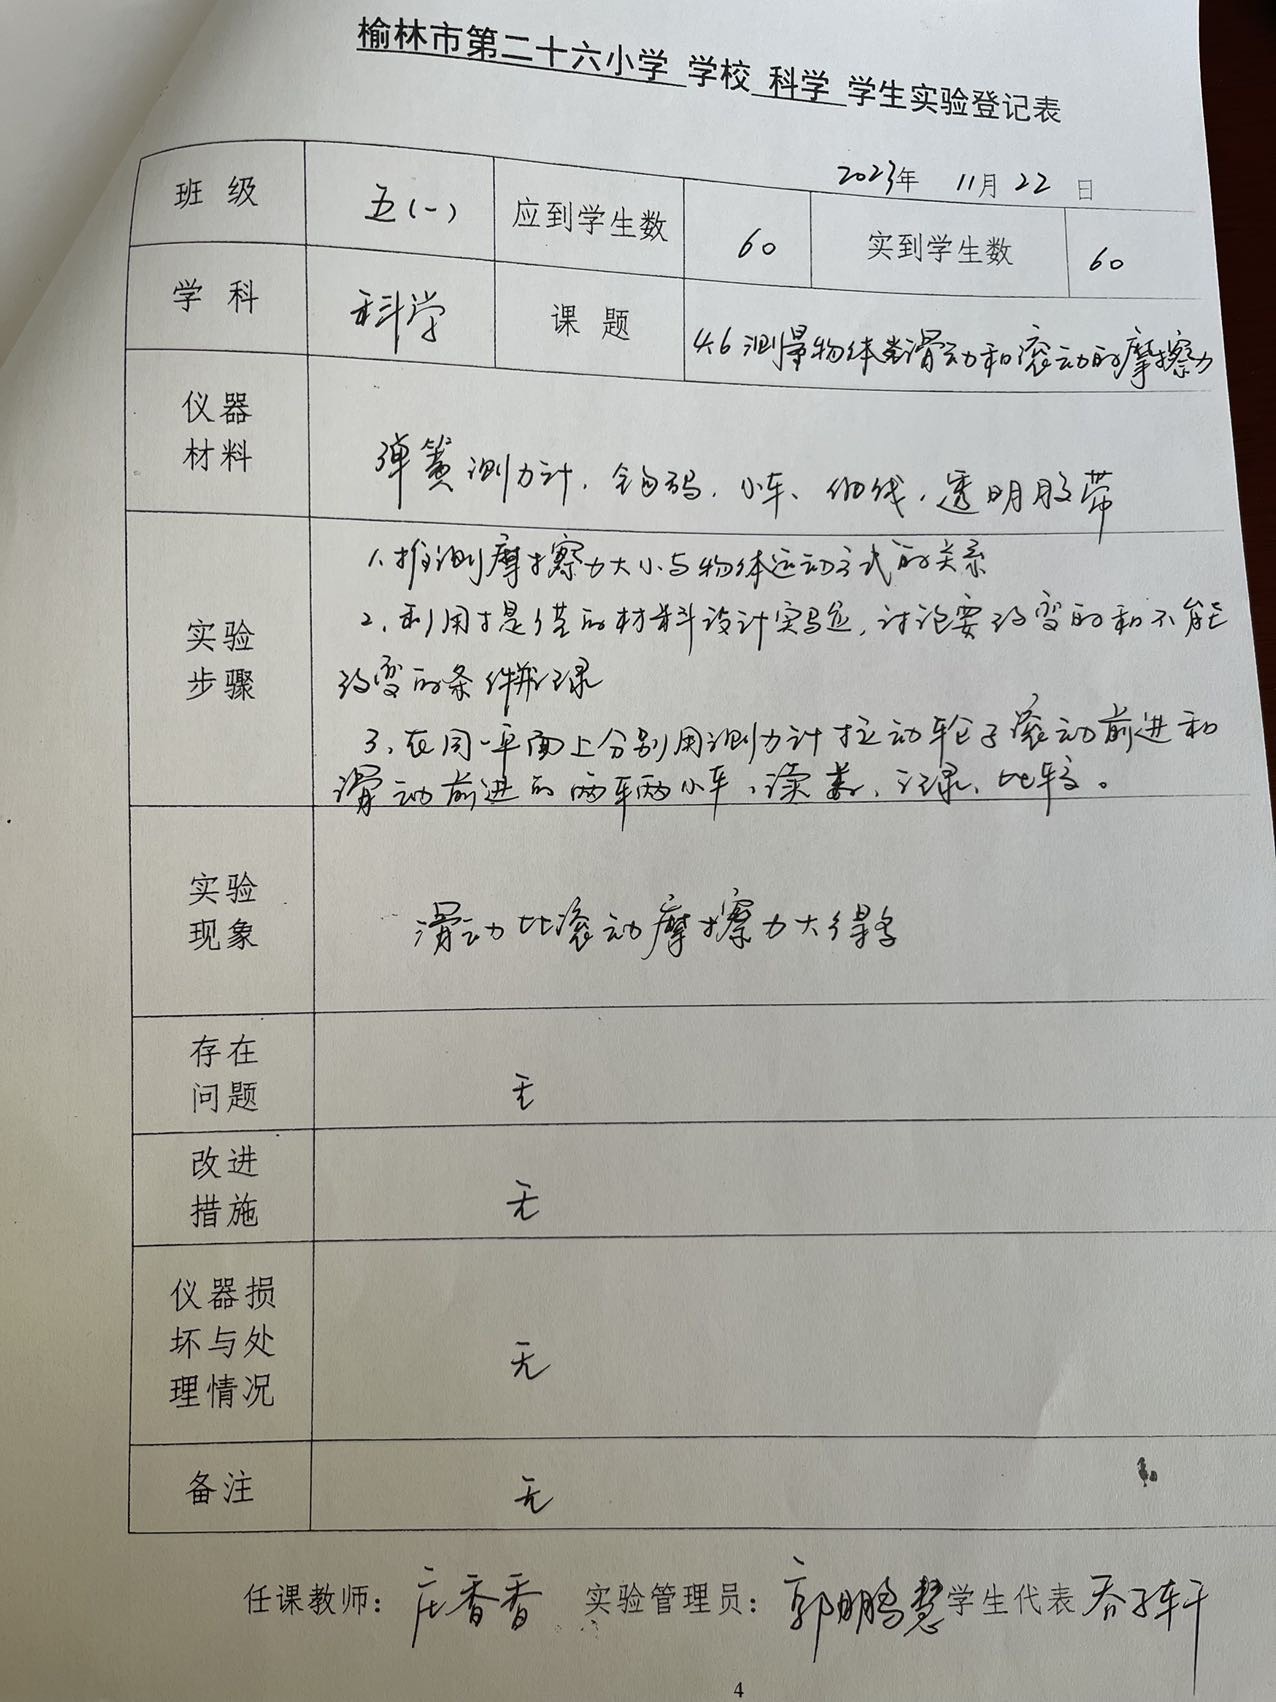 榆林市第二十六小学 学校 科学 学生实验登记表
2023年 11月 22 日
班 级 五(一) 应到学生数 60 实到学生数 60
学 科 科学 课 题 4.6测量物体滑动和滚动的摩擦力
仪器
材料
弹簧测力计、钩码、小车、细线、透明胶带
实验
步骤
1.推测摩擦力大小与物体运动方式的关系
2、利用提供的材料设计实验,讨论要改变的和不能
改变的条件并记录
3、在同一平面上分别用测力计拉动轮子滚动前进和
滑动前进的两车两小车、读数、记录、比较。
实验
现象
滑动比滚动摩擦力大得多
存在
问题
无
改进
措施
无
仪器损
坏与处
理情况
无
备注
无
任课教师: 庄香香 实验管理员: 郭鹏慧 学生代表 子轩
4